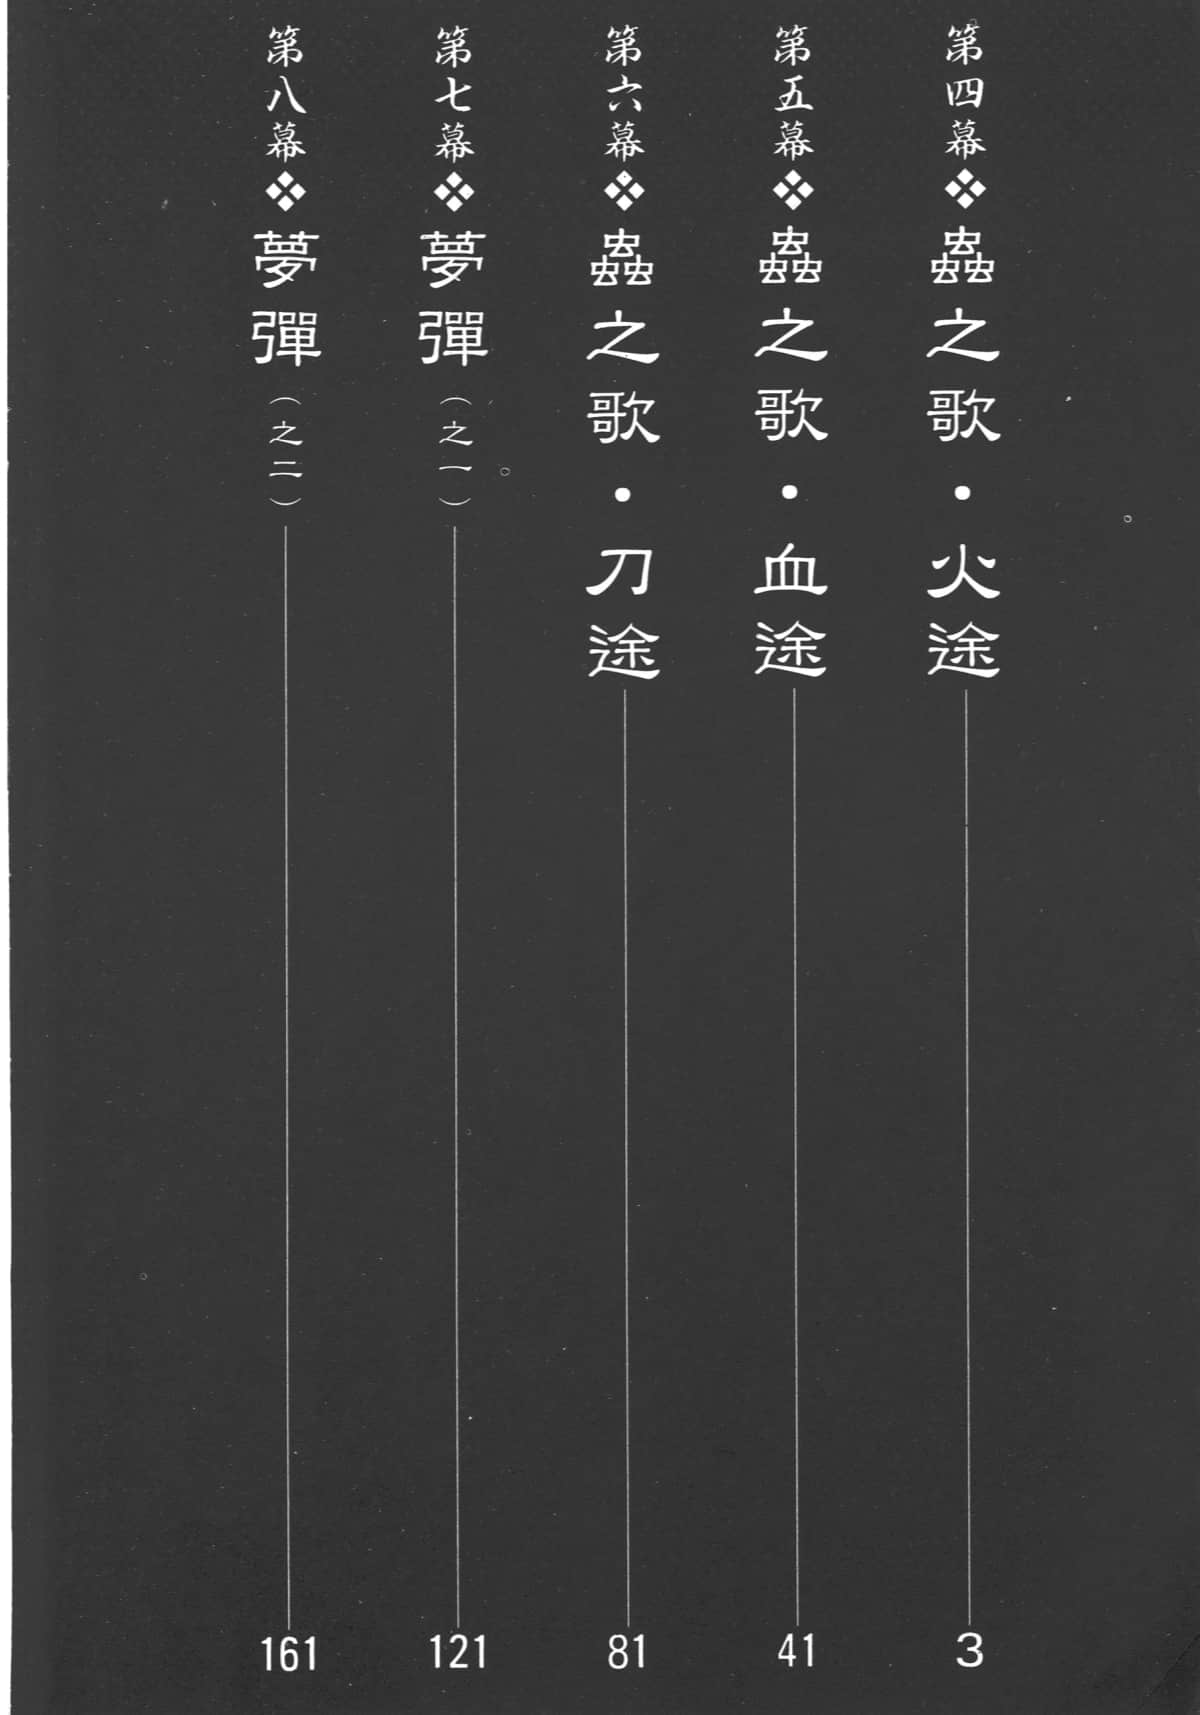 第四幕❖蟲之歌・火途 3
第五幕❖蟲之歌・血途 41
第六幕❖蟲之歌・刀途 81
第七幕❖夢彈（之一） 121
第八幕❖夢彈（之二） 161